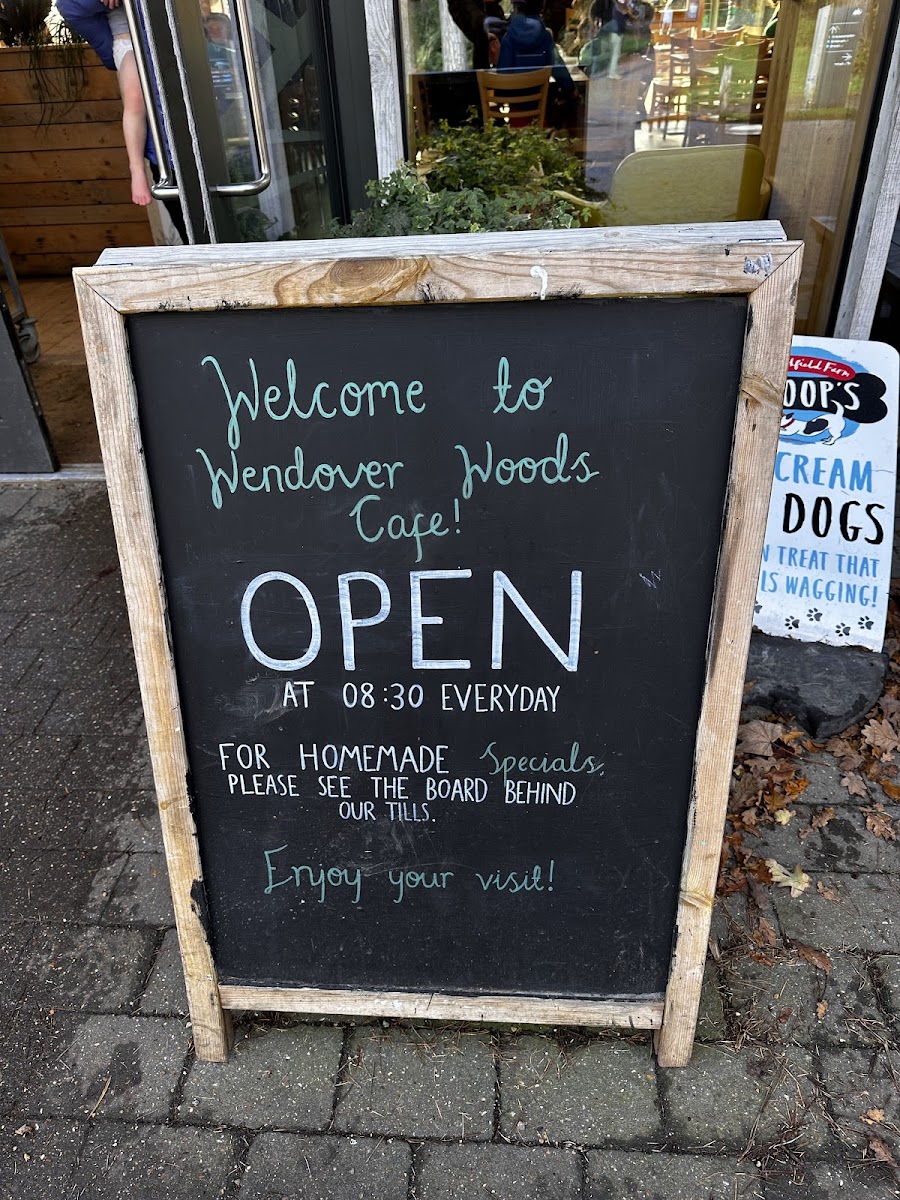 Welcome to
Wendover Woods
Cafe!
OPEN
AT 08:30 EVERYDAY
FOR HOMEMADE Specials,
PLEASE SEE THE BOARD BEHIND
OUR TILLS.
Enjoy your visit!
Farm
OOP'S
CREAM
DOGS
TREAT THAT
WAGGING!